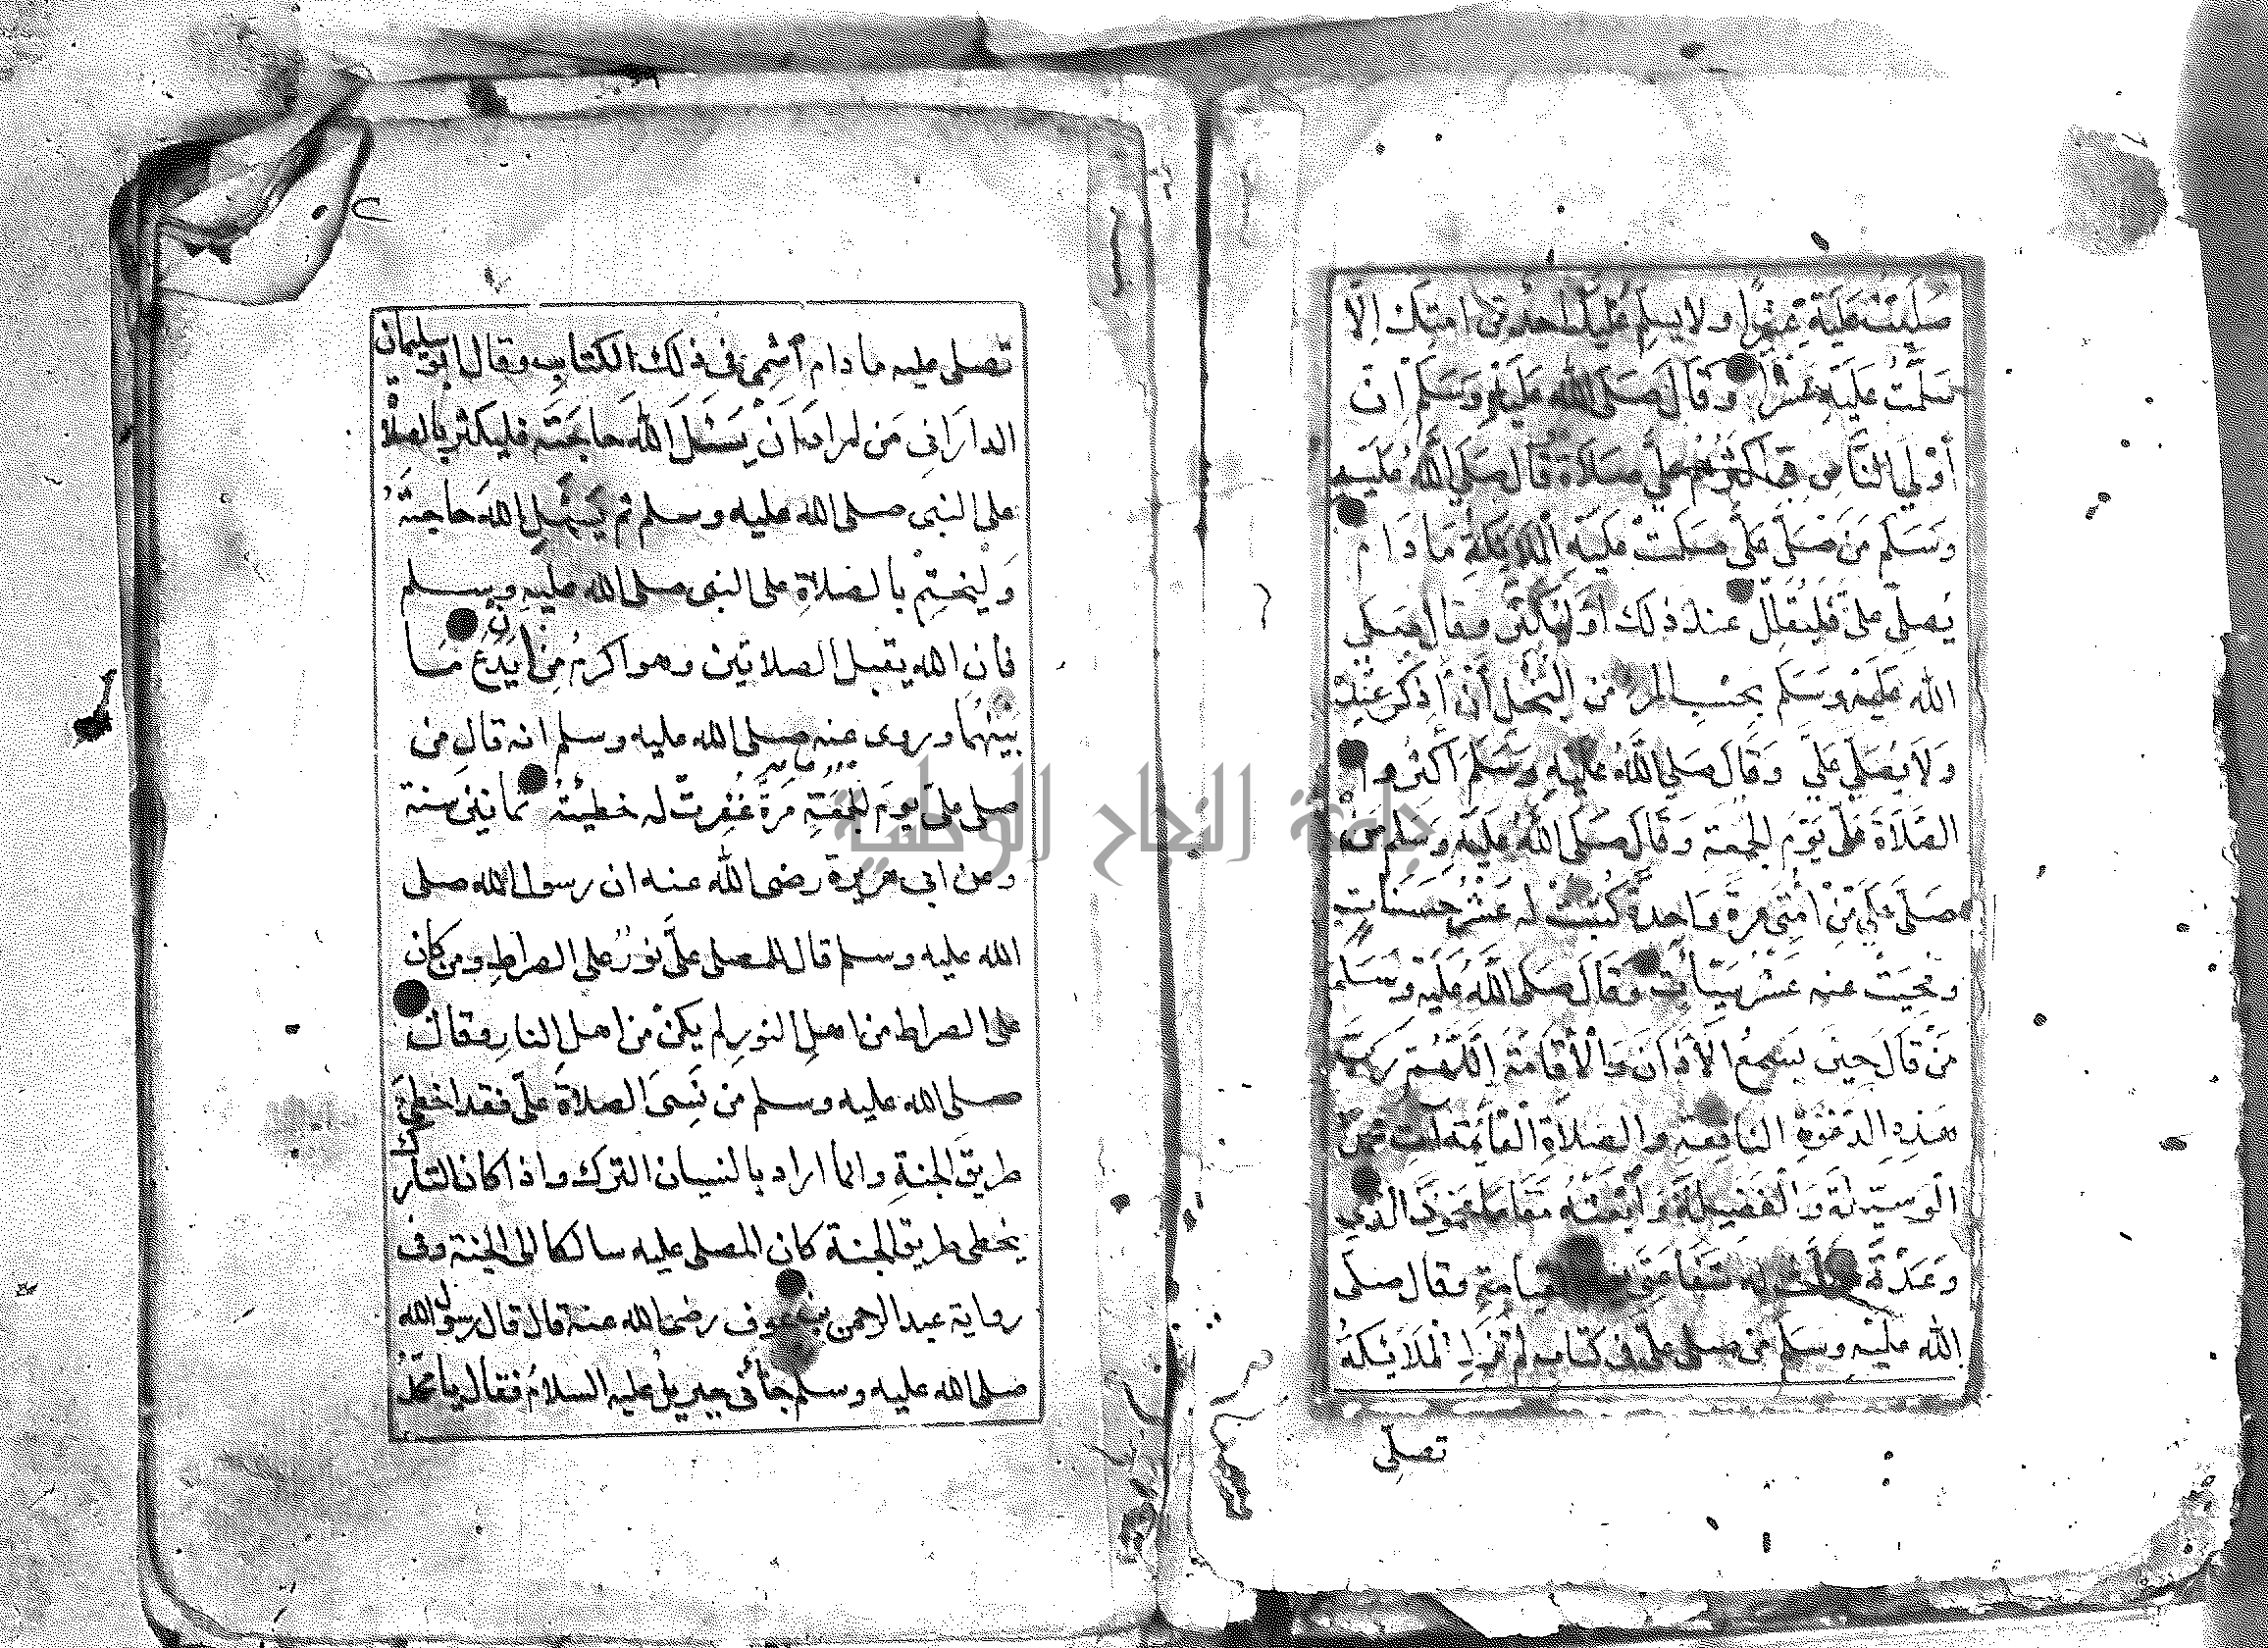 صَلَّيْتُ عَلَيْهِ عَشْرًا ولا يسلم عليك احد من امتك الا
سَلَّمْتُ عَلَيْهِ عَشْرًا وَقَالَ صَلَى الله عَلَيْهِ وَسَلَم اِنَّ
أَوْلى النَّاسِ بى اكثرهُمْ عَلَيَّ صَلاَةً قَالَ صَلَى اللهُ عَلَيهِ
وَسَلَم مَن صَلَّى عَلَيَّ صَلَّتْ عَلَيْهِ الْمَلَائِكَة مَا دَام
يُصلّى علىّ فَلْيُقْلِلْ عندَ ذلك اَوْ لِيُكْثِر وقال صَلى
الله عَلَيْهِ وسَلم بِحَسْبِ المرء من الْبُخْلِ أَنْ اُذْكَرَ عِنْدَهُ
وَلَا يُصَلِّى عَلَيَّ وَقَالَ صَلى اللَّهُ عليهِ وَسَلم أَكْثِرُوا
الصَّلَاةَ عَلَىَّ يَوْمَ الجمعة وَقَالَ صَلَى اللهُ عَلَيهِ وسَلم مَنْ
صَلَّى عَلَيَّ مِنْ اُمَّتِى مَرةً وَاحِدَةً كُتِبَتْ لَه عَشْرُ حَسَنَاتٍ
ومُحِيَتْ عنه عَشْرُ سَيّأتٍ وَقَالَ صَلى اللَّهُ عَلَيْهِ وَسَلم
مَنْ قَالَ حِينَ يَسْمَعُ الأذَانَ وَالْأِقَامَةَ اللَّهُمَّ رَبَّ
هَذِهِ الدَّعْوَةِ النافِعَةِ والصلاَةِ الْقَائِمَةِ اٰتِ محمدًا
الْوَسِيْلَةَ وَالْفَضِيلَةَ وَابْعَثْهُ مَقَامًا مَحْمُودًا الذى
وَعَدْتَهُ حَلَّتْ لَه شَفَاعَتِى القيامةِ وقال صلى
الله عليْهِ وسَلم من صلى علىّ فى كتابٍ لم تَزَلِ الْمَلَائِكَةُ
تصلّى
تصلى عليه ما دام اسْمِى فى ذلك الكتابِ وقال ابو سليمان
الدارَانى مَن اراد اَنْ يَسْئَلَ اللهَ حَاجَتَه فليكثر بالصلاة
على النبى صلى الله عليه وسلم ثم يَسْئَلِ الله حاجتَهُ
وَليَخْتِمْ بالصلاةِ على النبى صلى الله عليهِ وسلم
فان الله يقبل الصلاتين وهو اكرمُ مِن أن يَدَعَ مَا
بينهُما وروى عنه صلى الله عليه وسلم انه قال من
صلى علىّ يومَ الجُمُعَةِ مِائَة مَرةً غُفِرتْ له خطيئَةُ ثمانينَ سنة
وعن ابى هريرة رضى الله عنه ان رسول الله صلى
الله عليه وسلم قال للمصلى علَىَّ نورٌ على الصراطِ ومن كان
على الصراط من اهلِ النورِ لم يكنْ من اهلِ النارِ وقال
صلى الله عليه وسلم من نَسِىَ الصلاةَ علىّ فقد اخطىَ
طريقَ الجنةِ وانما اراد بالنسيان الترك واذا كان التارك
يخطى طريق الجنة كان المصلى عليه سالكا الى الجنة وفى
رواية عبد الرحمن بن عوف رضى الله عنه قال قال رسول الله
صلى الله عليه وسلم جأنى جبريلُ عليه السلامُ فقال يا محمّدُ
جامعة النجاح الوطنية